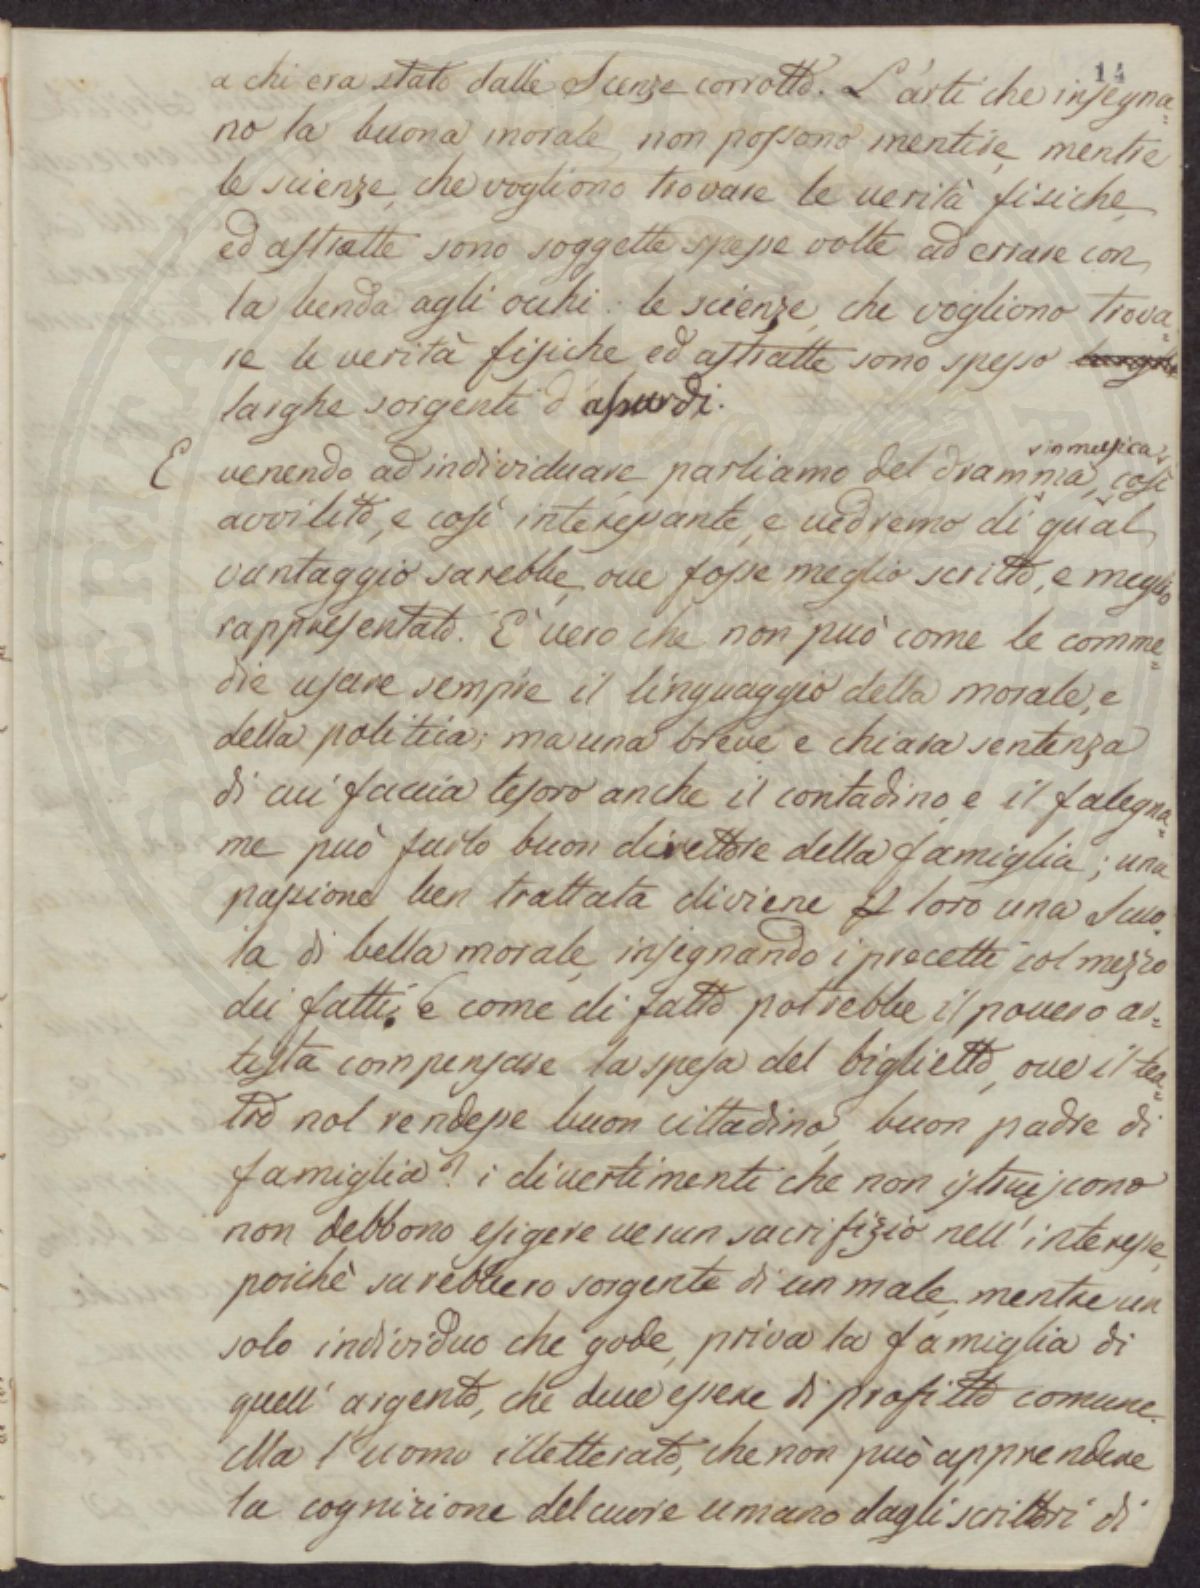 14
a chi era stato dalle Scienze corrotto. L'arti che insegna=
no la buona morale non possono mentire, mentre
le scienze, che vogliono trovare le verità fisiche,
ed astratte sono soggette spesse volte ad errare con
la benda agli occhi: le scienze, che vogliono trova=
re le verità fisiche, ed astratte sono spesso larghe
larghe sorgenti d'assurdi.
in musica
E venendo ad individuare, parliamo del dramma, così
avvilito, e così interessante, e vedremo di qual
vantaggio sarebbe, ove fosse meglio scritto, e meglio
rappresentato. E' vero che non può come le comme=
die usare sempre il linguaggio della morale, e
della politica; ma una breve e chiara sentenza
di cui faccia tesoro anche il contadino, e il falegna=
me può farlo buon direttore della famiglia; una
passione ben trattata diviene loro una Scuo=
la di bella morale, insegnando i precetti col mezzo
dei fatti; e come di fatto potrebbe il povero ar=
tista compensare la spesa del biglietto, ove il tea=
tro nol rendesse buon cittadino, buon padre di
famiglia? i divertimenti che non istruiscono
non debbono esigere verun sacrifizio nell'interesse,
poichè sarebbero sorgente di un male, mentre un
solo individuo che gode, priva la famiglia di
quell'argento, che deve essere di profitto comune.
Ma l'uomo illetterato, che non può apprendere
la cognizione del cuore umano dagli scrittori di